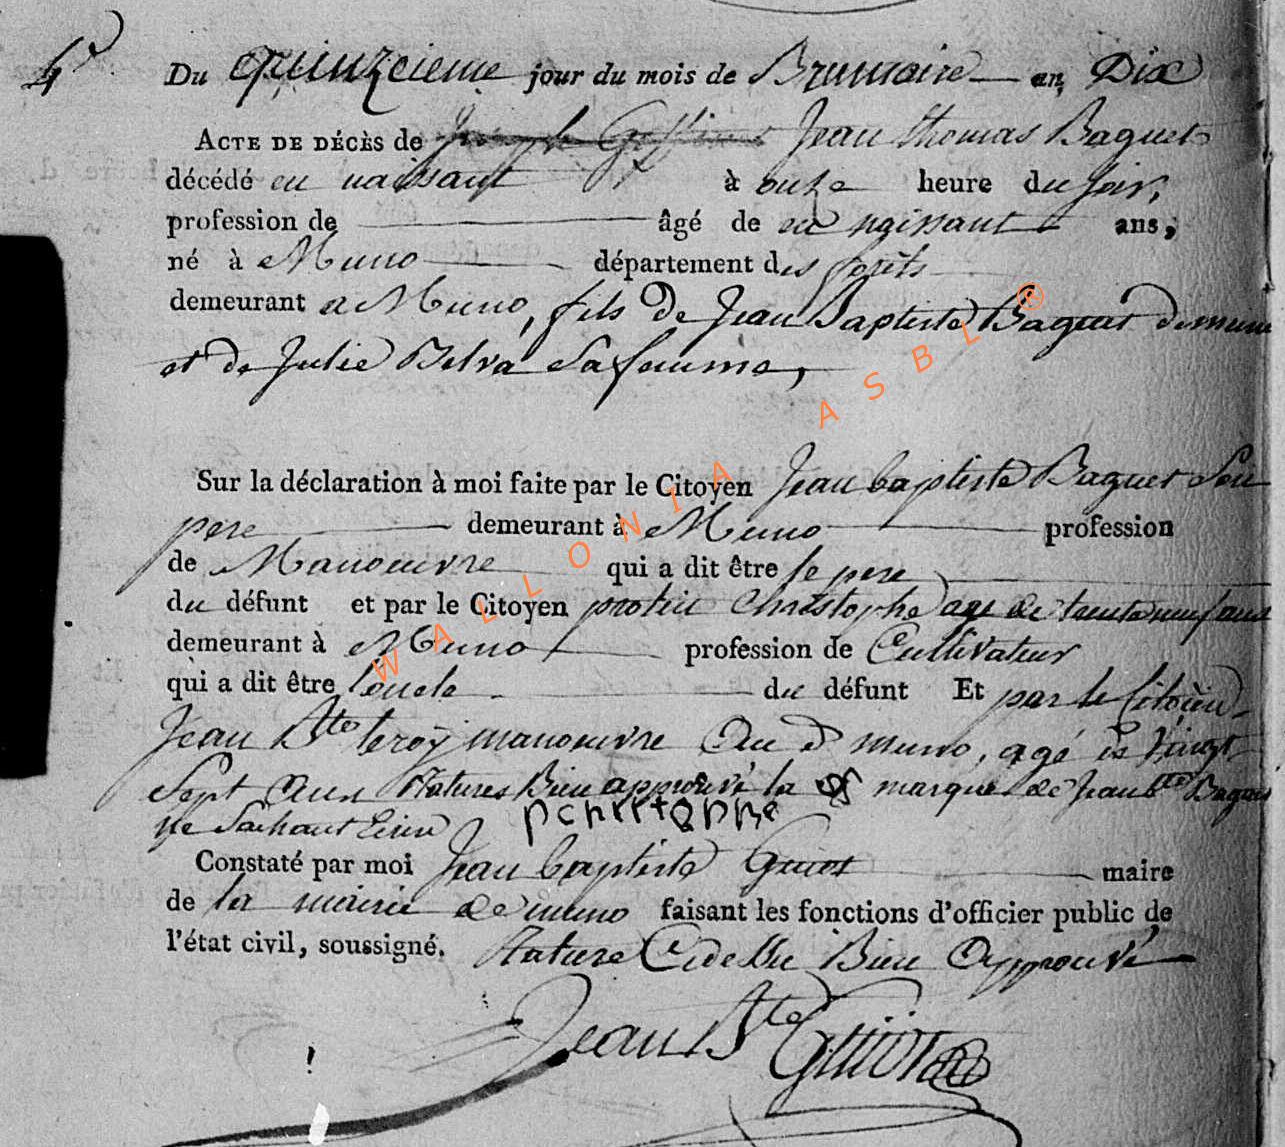 4e
Du quinzcieme jour du mois de Brumaire an Dix
ACTE DE DÉCÈS de Jean thomas Baguet
décédé en naissant à onze heure du soir,
profession de âgé de en naissant ans,
né à Muno département des forêts
demeurant a Muno, fils de Jean Baptiste Baguet
et de Julie Belva sa femme,
Sur la déclaration à moi faite par le Citoyen Jean baptiste Baguet Son
pere demeurant à Muno profession
de Manoeuvre qui a dit être le pere
du défunt et par le Citoyen Christophe age de trente neuf ans
demeurant à Muno profession de Cultivateur
qui a dit être l'oncle du défunt Et par le Citoien
Jean Bte leroÿ manoeuvre de muno, agé de Vingt
Sept Ans Ratures Bien approuvé la marque de Jean Bte Baguet
ne Sachant Ecrire
Constaté par moi Jean baptiste Guiot maire
de la mairie de muno faisant les fonctions d'officier public de
l'état civil, soussigné. Rature Cidessu Bien Approuvé
Jean Bte Guiot
WALLONIA ASBL ®